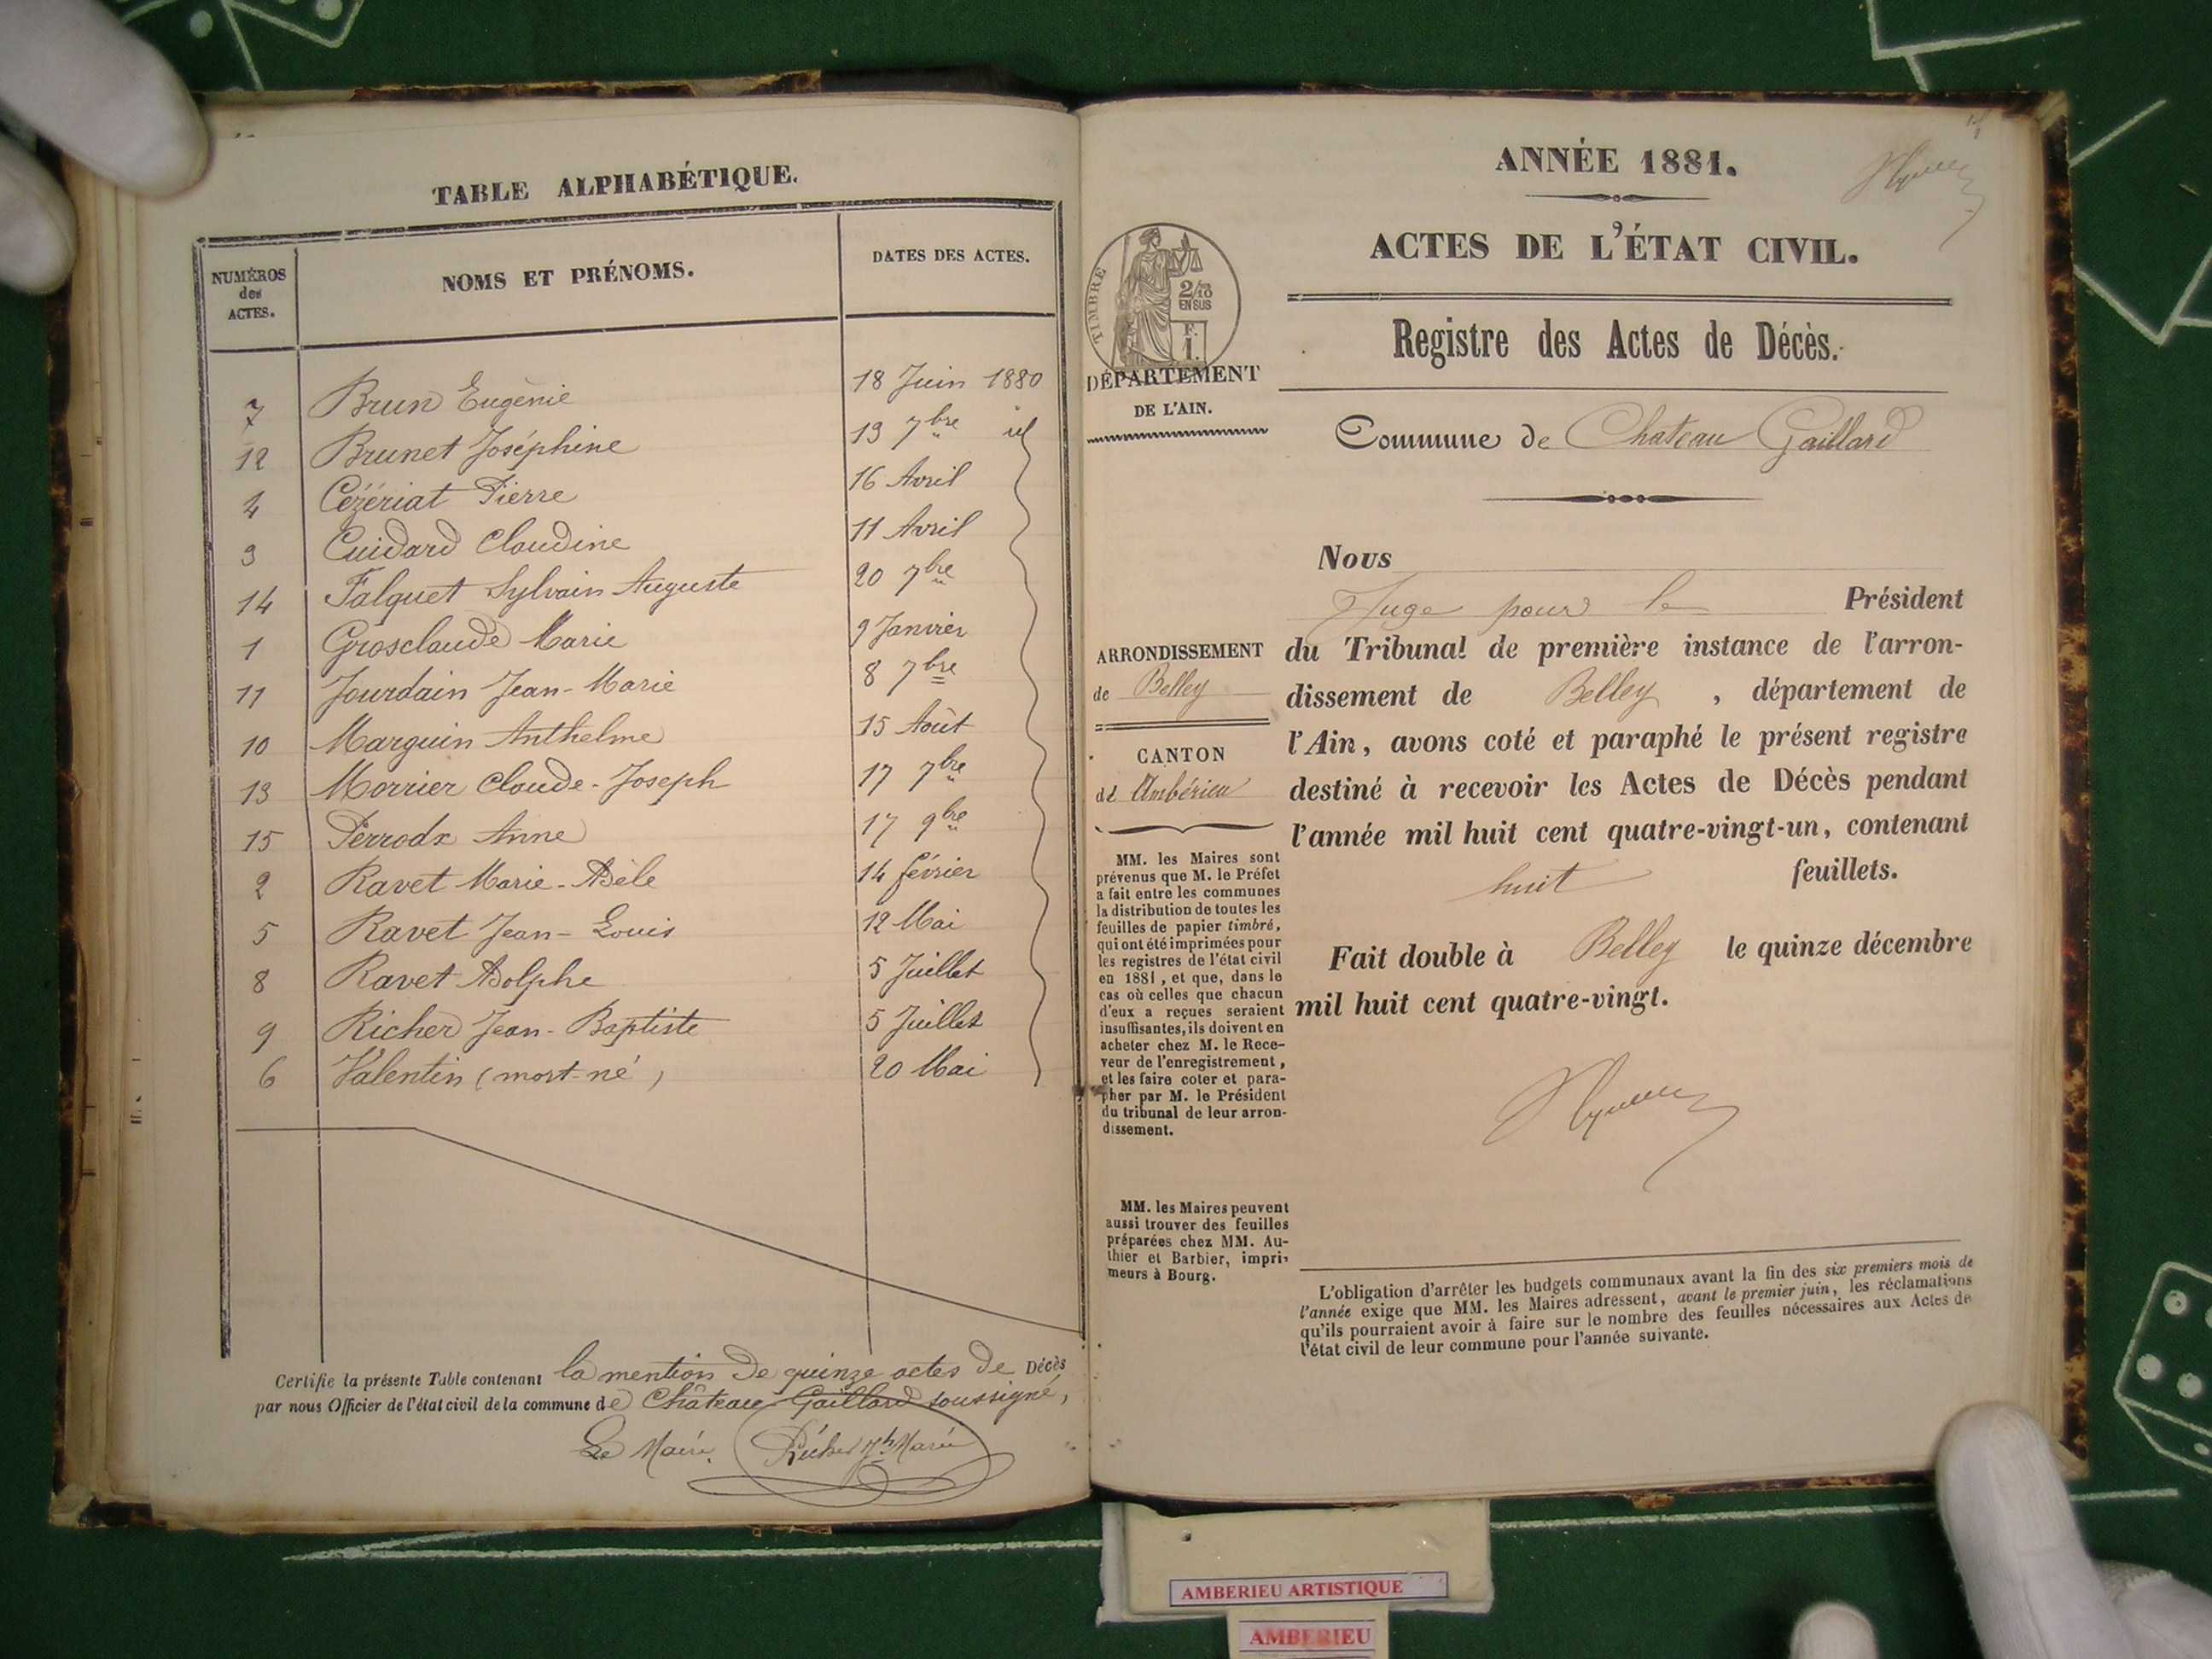 TABLE ALPHABÉTIQUE.
NUMÉROS des ACTES. NOMS ET PRÉNOMS. DATES DES ACTES.
7 Brun Eugénie 18 Juin 1880
12 Brunet Joséphine 13 7bre id
4 Cézériat Pierre 16 Avril
3 Cuidard Claudine 11 Avril
14 Falquet Sylvain Auguste 20 7bre
1 Grosclaude Marie 9 Janvier
11 Jourdain Jean-Marie 8 7bre
10 Marguin Anthelme 15 Août
13 Morrier Claude-Joseph 17 7bre
15 Perrodx Anne 17 9bre
2 Ravet Marie-Adèle 14 février
5 Ravet Jean-Louis 12 Mai
8 Ravet Adolphe 5 Juillet
9 Richer Jean-Baptiste 5 Juillet
6 Valentin (mort-né) 20 Mai
Certifie la présente Table contenant la mention de quinze actes de Décès
par nous Officier de l'état civil de la commune de Château-Gaillard soussigné,
Le Maire.
ANNÉE 1881.
ACTES DE L'ÉTAT CIVIL.
Registre des Actes de Décès.
TIMBRE
2/10
EN SUS
F.
1.
DÉPARTEMENT
DE L'AIN.
Commune de Chateau Gaillard
Nous
Juge pour le Président
du Tribunal de première instance de l'arron-
dissement de Belley, département de
l'Ain, avons coté et paraphé le présent registre
destiné à recevoir les Actes de Décès pendant
l'année mil huit cent quatre-vingt-un, contenant
huit feuillets.
Fait double à Belley le quinze décembre
mil huit cent quatre-vingt.
ARRONDISSEMENT
de Belley
CANTON
d' Ambérieu
MM. les Maires sont
prévenus que M. le Préfet
a fait entre les communes
la distribution de toutes les
feuilles de papier timbré,
qui ont été imprimées pour
les registres de l'état civil
en 1881, et que, dans le
cas où celles que chacun
d'eux a reçues seraient
insuffisantes, ils doivent en
acheter chez M. le Rece-
veur de l'enregistrement,
et les faire coter et para-
pher par M. le Président
du tribunal de leur arron-
dissement.
MM. les Maires peuvent
aussi trouver des feuilles
préparées chez MM. Au-
thier et Barbier, impri-
meurs à Bourg.
L'obligation d'arrêter les budgets communaux avant la fin des six premiers mois de
l'année exige que MM. les Maires adressent, avant le premier juin, les réclamations
qu'ils pourraient avoir à faire sur le nombre des feuilles nécessaires aux Actes de
l'état civil de leur commune pour l'année suivante.
AMBERIEU ARTISTIQUE
AMBERIEU